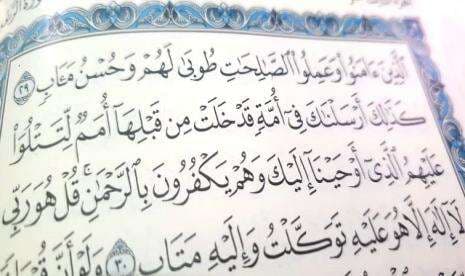 سورة الرعد
الَّذِينَ ءَامَنُوا۟ وَعَمِلُوا۟ الصَّٰلِحَٰتِ طُوبَىٰ لَهُمْ وَحُسْنُ مَـَٔابٍ ٢٩
كَذَٰلِكَ أَرْسَلْنَٰكَ فِىٓ أُمَّةٍ قَدْ خَلَتْ مِن قَبْلِهَآ أُمَمٌ لِّتَتْلُوَا۟
عَلَيْهِمُ الَّذِىٓ أَوْحَيْنَآ إِلَيْكَ وَهُمْ يَكْفُرُونَ بِالرَّحْمَٰنِ ۚ قُلْ هُوَ رَبِّى
لَآ إِلَٰهَ إِلَّا هُوَ عَلَيْهِ تَوَكَّلْتُ وَإِلَيْهِ مَتَابِ ٣٠ وَلَوْ أَنَّ